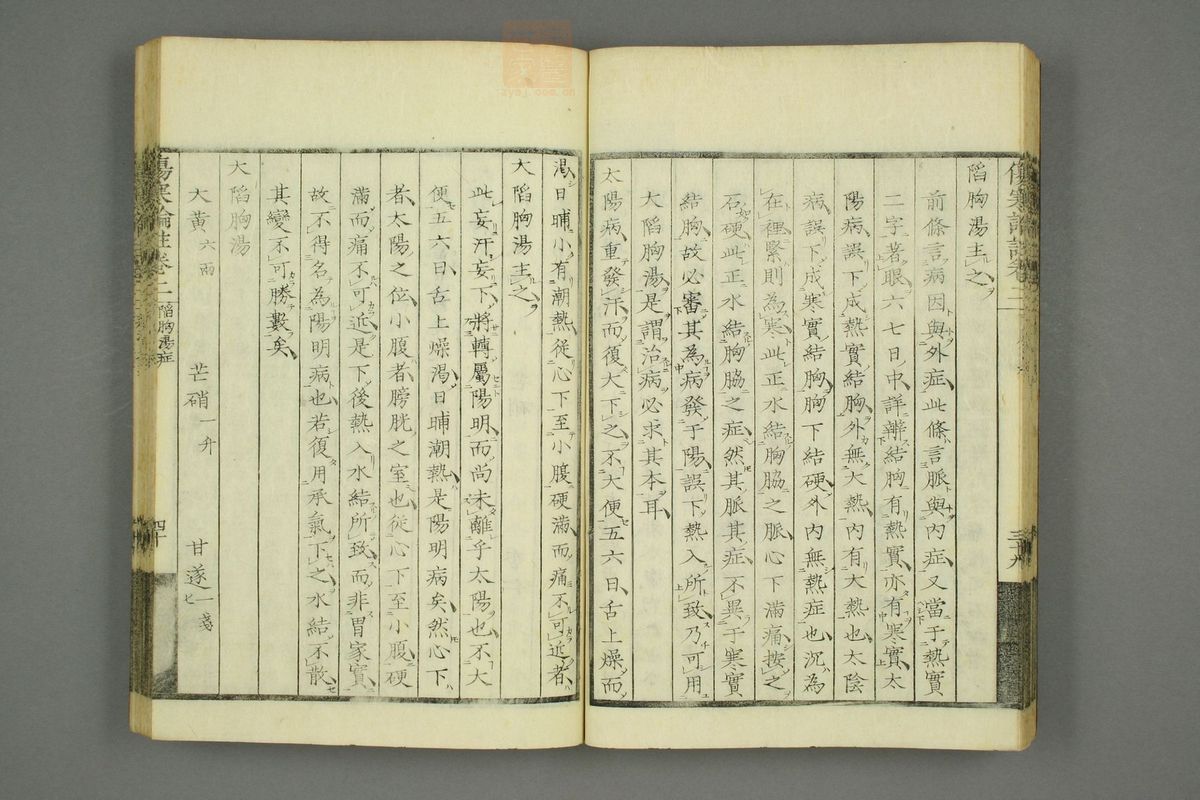 陷胸湯主之
前條言病因與外症此條言脈與內症又當于熱實
二字著眼六七日中詳辨結胸有熱實亦有寒實太
陽病誤下成熱實結胸外無大熱內有大熱也太陰
病誤下成寒實結胸胸下結硬外內無熱症也沉為
在裡緊則為寒此正水結胸脇之脈心下滿痛按之
石硬此正水結胸脇之症然其脈其症不異于寒實
結胸故必審其為病發于陽誤下熱入所致乃可用
大陷胸湯是謂治病必求其本耳
太陽病重發汗而復大下之不大便五六日舌上燥而
渴日晡小有潮熱從心下至小腹硬滿而痛不可近者
大陷胸湯主之
此妄汗妄下將轉屬陽明而尚未離乎太陽也不大
便五六日舌上燥渴日晡潮熱是陽明病矣然心下
者太陽之位小腹者膀胱之室也從心下至小腹硬
滿而痛不可近是下後熱入水結所致而非胃家實
故不得名為陽明病也若復用承氣下之水結不散
其變不可勝數矣
大陷胸湯
大黃六兩 芒硝一升 甘遂一
傷寒論註卷二 陷胸湯症 四十